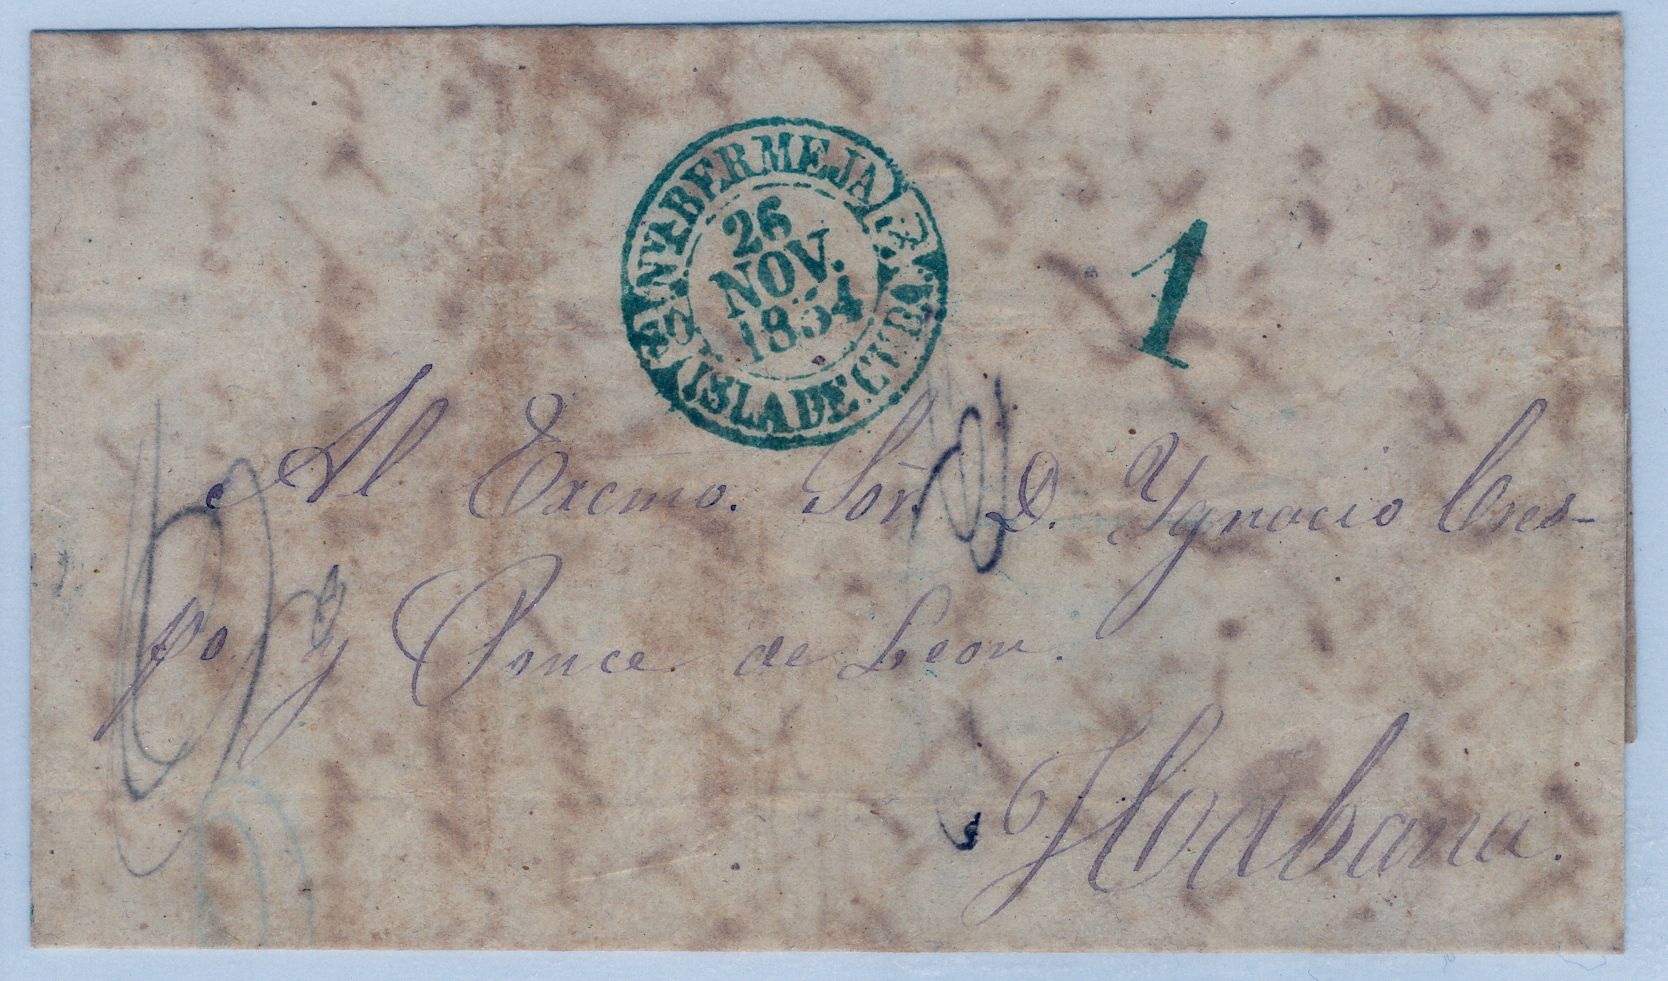 SABANY BERMEJA
26
NOV.
1854
ISLA DE CUBA
1
Al Excmo. Sor. D. Ygnacio Cres-
po y Ponce de Leon.
Habana.